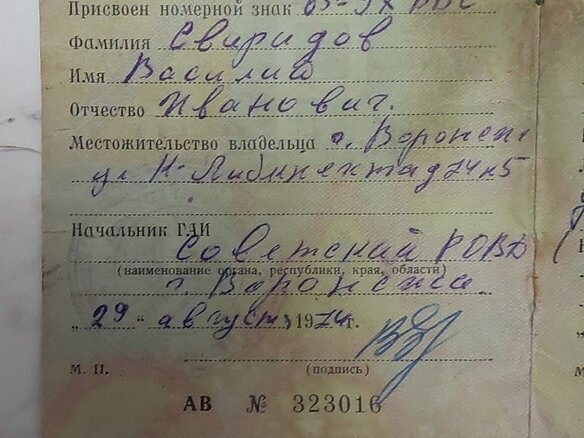 Присвоен номерной знак
Фамилия Свиридов
Имя Василий
Отчество Иванович.
Местожительство владельца г. Воронеж
ул К-Либкнехта д 74 к 5
Начальник ГАИ
Советский РОВД
(наименование органа, республики, края, области)
г. Воронежа
„29" август 1974 г.
М. П. (подпись)
АВ № 323016